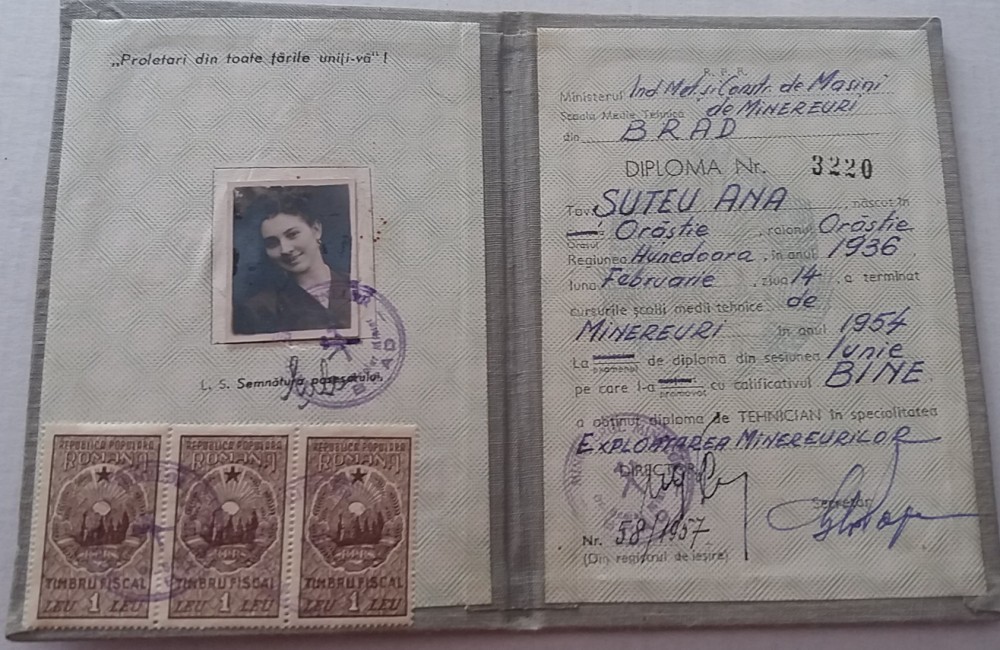 „Proletari din toate țările uniți-vă” !
L. S. Semnătura posesorului,
REPUBLICA POPULARA
ROMÂNĂ
TIMBRU FISCAL
LEU 1 LEU
REPUBLICA POPULARA
ROMÂNĂ
TIMBRU FISCAL
LEU 1 LEU
REPUBLICA POPULARA
ROMÂNĂ
TIMBRU FISCAL
LEU 1 LEU
R. P. R.
Ministerul Ind. Met. și Constr. de Mașini
Școala Medie Tehnică de MINEREURI
din BRAD
DIPLOMA Nr. 3220
Tov. SUTEU ANA, născut în
Orașul Orăștie, raionul Orăștie
Regiunea Hunedoara, în anul 1936
luna Februarie ziua 14, a terminat
cursurile școlii medii tehnice de
MINEREURI în anul 1954
La examenul de diplomă din sesiunea Iunie
pe care l-a promovat cu calificativul BINE
a obținut diploma de TEHNICIAN în specialitatea
EXPLOATAREA MINEREURILOR
DIRECTOR,
Secretar,
Nr. 58/1957
(Din registrul de ieșire)